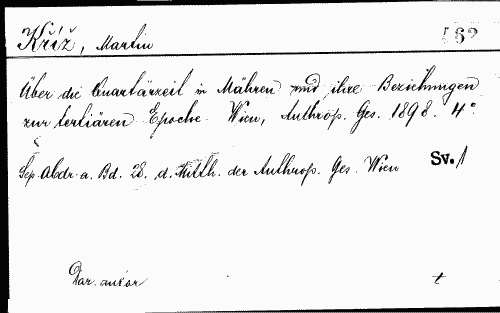 Kříž, Martin 562
Über die Quartärzeit in Mähren und ihre Beziehungen
zur tertiären Epoche. Wien, Anthrop. Ges. 1898. 4°
Sep. Abdr. a. Bd. 28. d. Mitth. der Anthrop. Ges. Wien Sv. 1
Dar. autor t